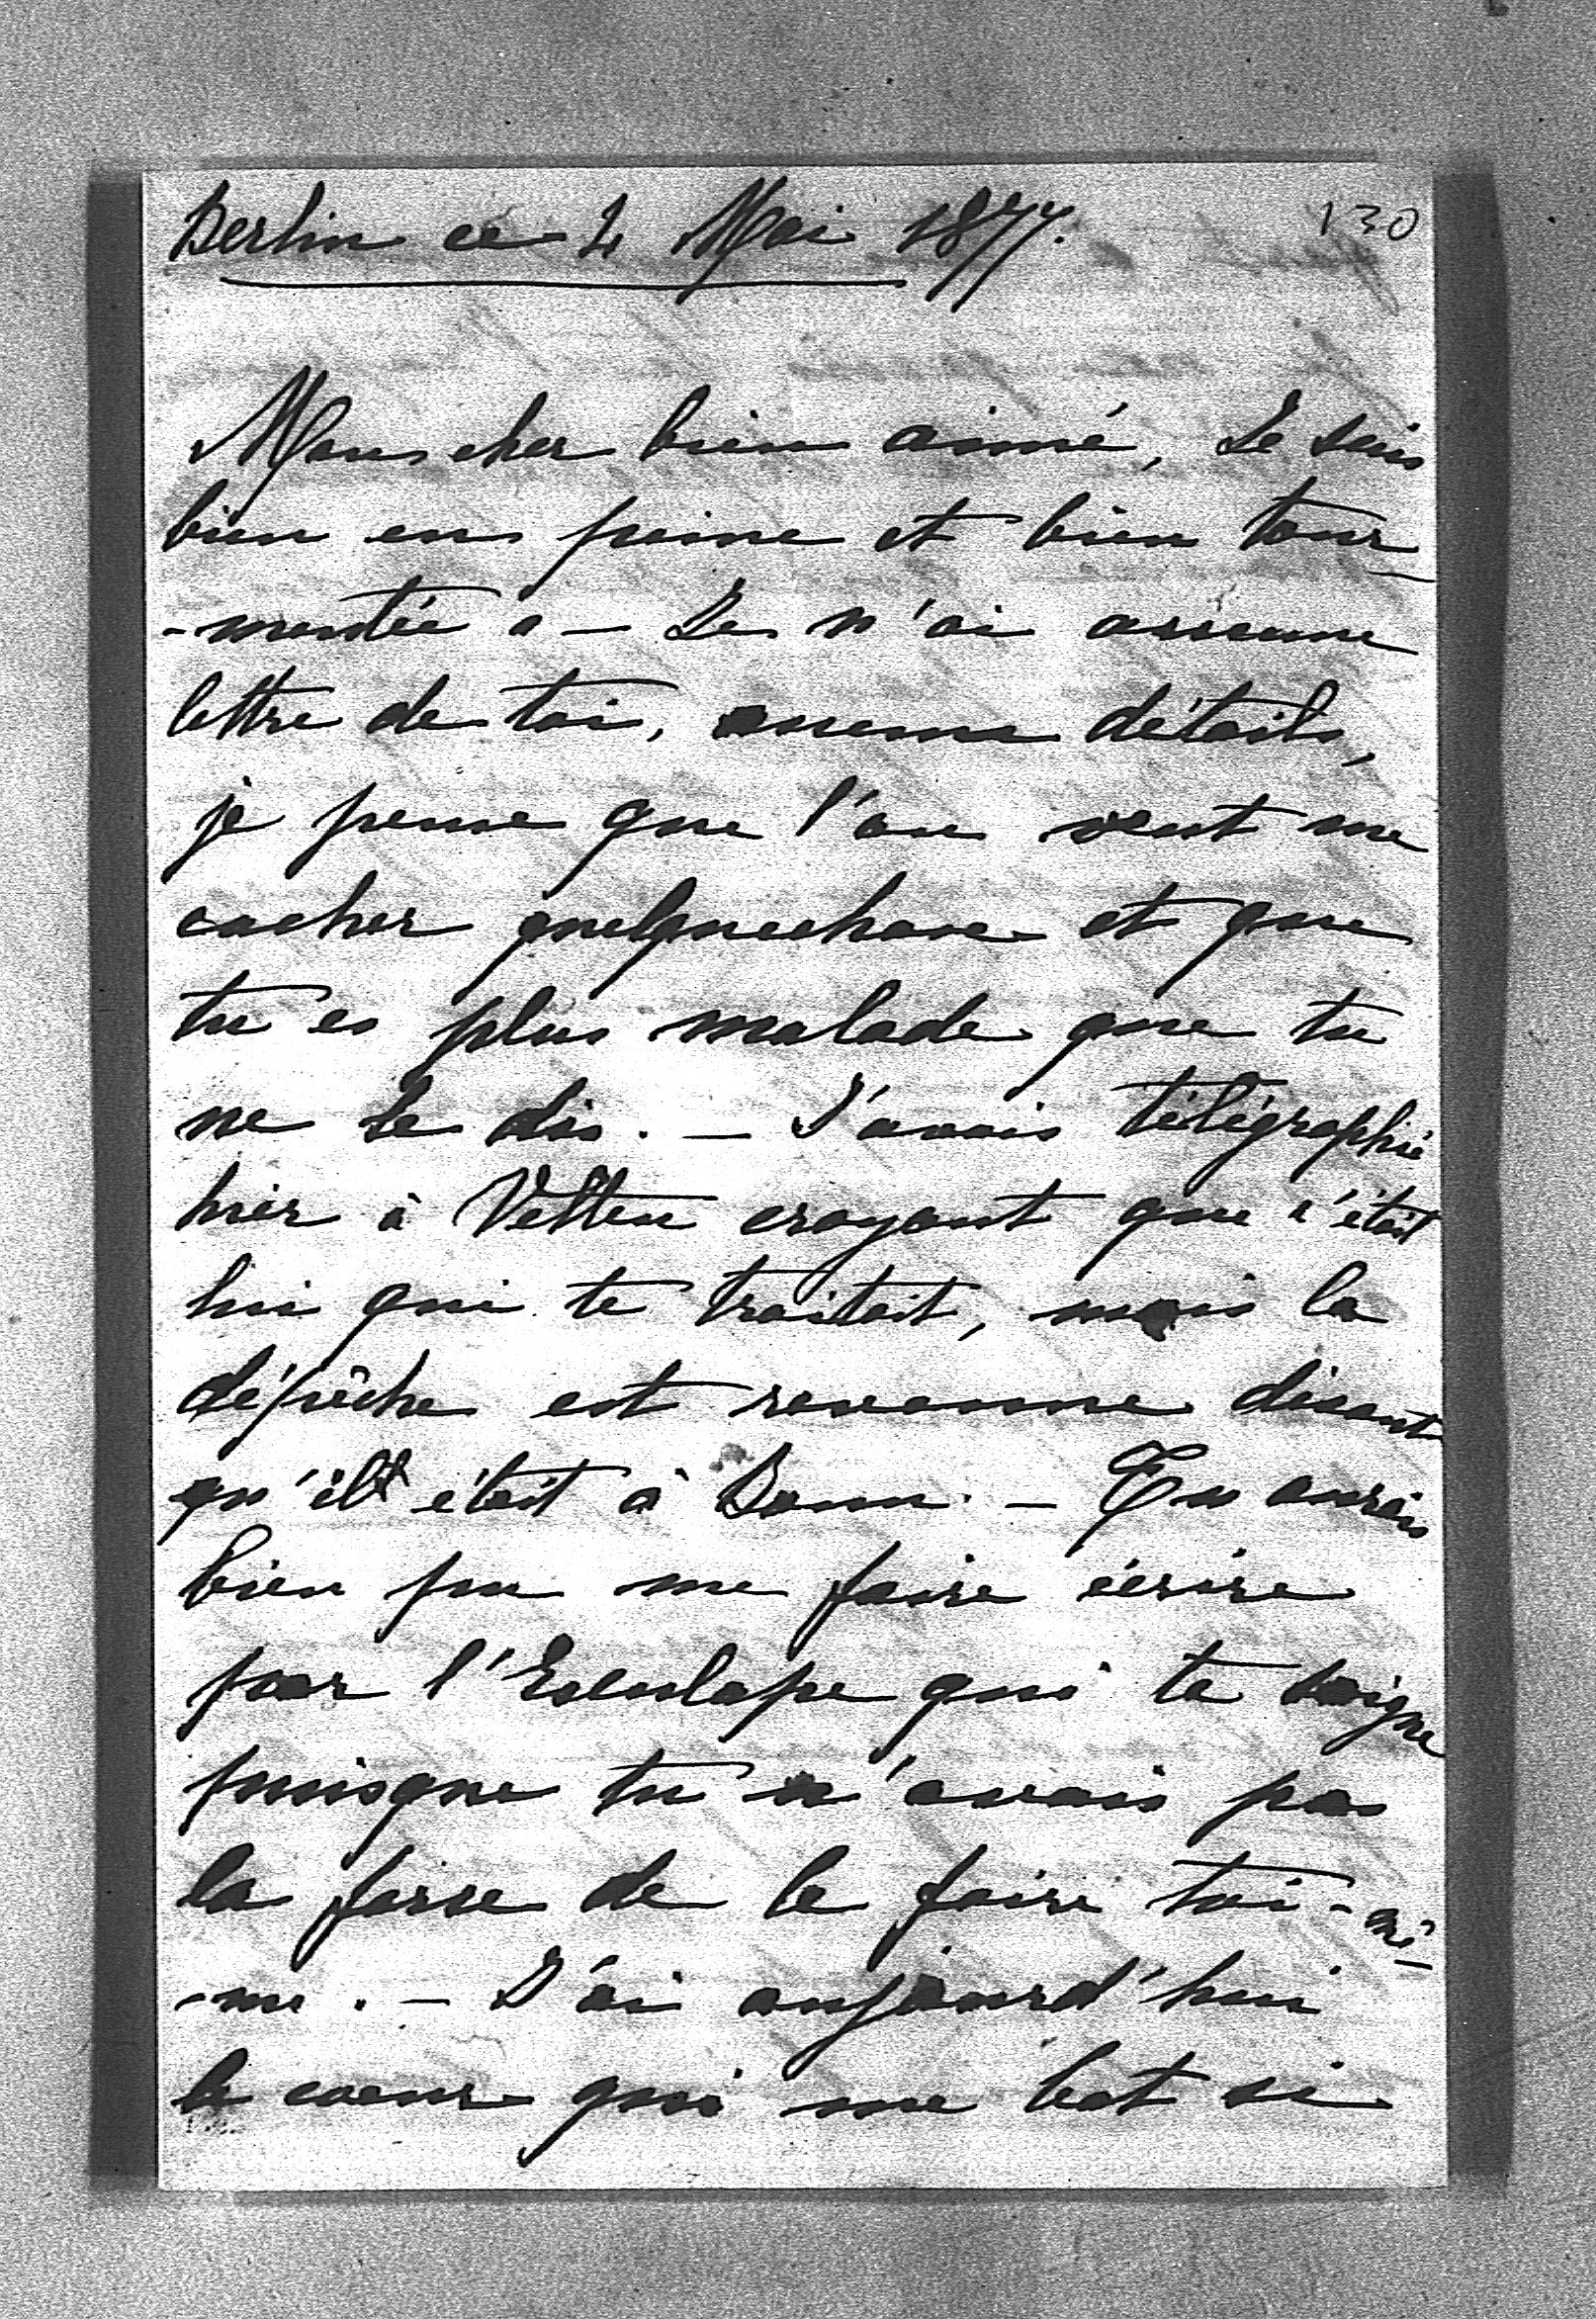 Berlin ce 4 Mai 1877.
130
Mon cher bien aimé, Je suis
bien en peine et bien tour
-mentée . — Je n'ai aucune
lettre de toi, aucuns détails,
je pense que l'on veut me
cacher quelquechose et que
tu es plus malade que tu
ne le dis. — J'avais télégraphié
hier à Velten croyant que c'était
lui qui te traitait, mais la
dépêche est revenue disant
qu'il était à Bonn. — Tu aurais
bien pu me faire écrire
par l'Esculape qui te soigne
puisque tu n'avais pas
la forse de le faire toi-mê-
-me. — J'ai aujourd'hui
le coeur qui me bat si